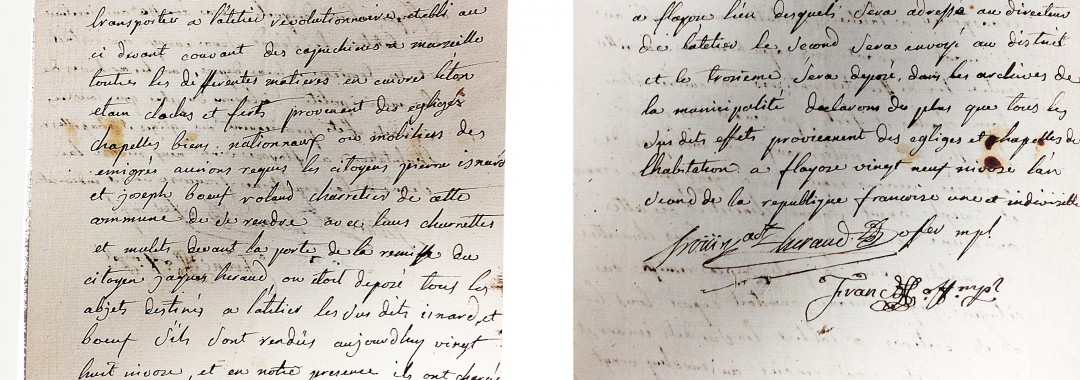 transporter a latelier revolutionnaire etabli au
ci devant couvant des capuchines a marseille
toutes les differentes matieres en cuivre leton
etain cloches et ferts provenent des egligez
chapelles biens nationnaux ou mobiliers des
emigrés aurions requis les citoyens pierre isnard
et joseph boeuf voland charretier de cette
commune de se rendre avec leurs charrettes
et mulets devant la porte de la remise du
citoyen jaques heraud ou etoit deposé tous les
abjets destinés a latelier les susdits isnard et
boeuf s'ils sont rendûs aujourdhuy vingt
huit nivose et en notre presence ils ont chargé
a flayosc lieu desquels sera adressé au directeur
de latelier le second sera envoyé au district
et le troisieme sera deposé dans les archives de
la municipalité declarons de plus que tous les
susdits effets provienent des egliges et chapelles de
lhabitation a flayosc vingt neuf nivose lan
second de la republique francoise une et indivisible
heraud ofer mpl
Franc off mpl